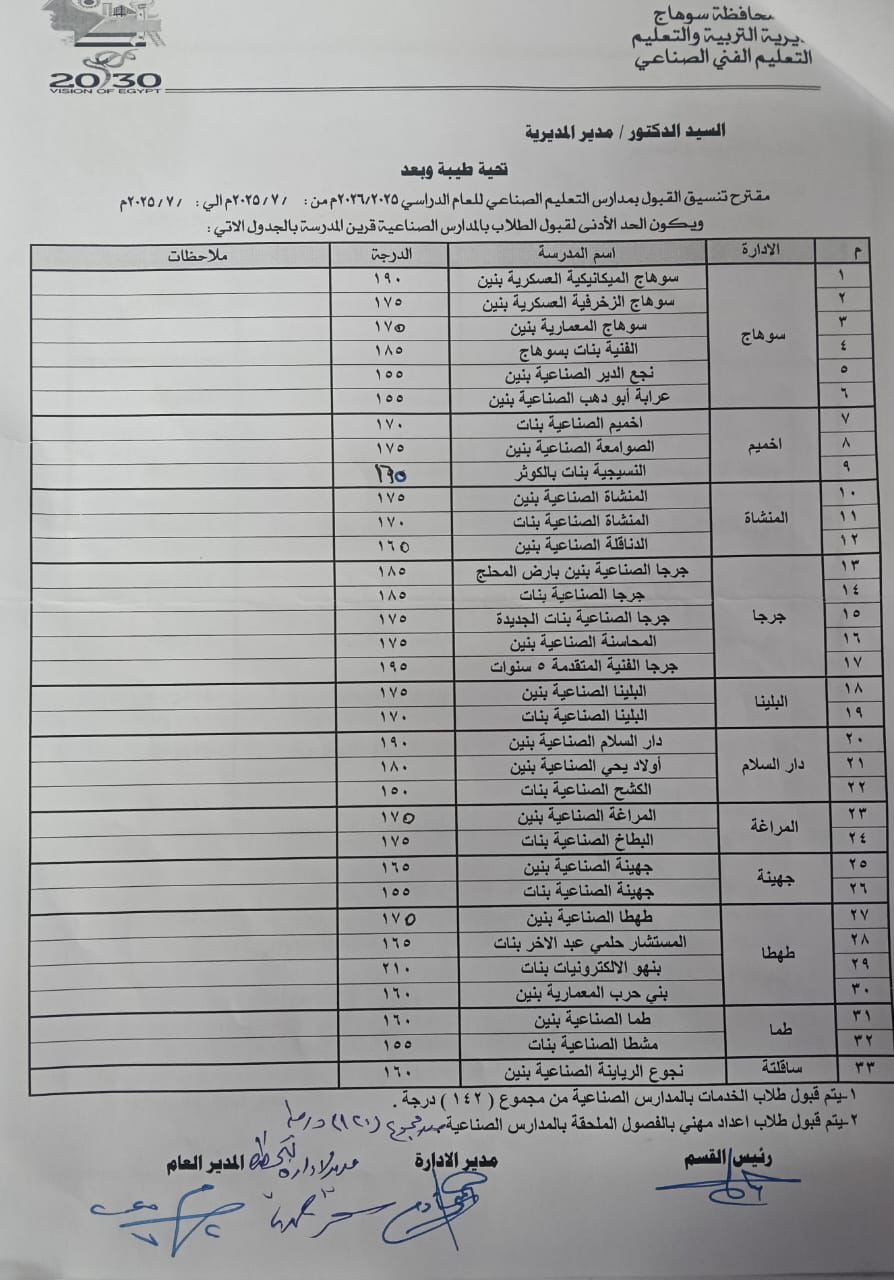 محافظة سوهاج
مديرية التربية والتعليم
التعليم الفني الصناعي
2030
VISION OF EGYPT
السيد الدكتور / مدير المديرية
تحية طيبة وبعد
مقترح تنسيق القبول بمدارس التعليم الصناعي للعام الدراسي ٢٠٢٦/٢٠٢٥م من : / ٢٠٢٥/٧م الي : / ٢٠٢٥/٧م
ويكون الحد الأدنى لقبول الطلاب بالمدارس الصناعية قرين المدرسة بالجدول الاتي :
م الادارة اسم المدرسة الدرجة ملاحظات
١ سوهاج سوهاج الميكانيكية العسكرية بنين ١٩٠
٢ سوهاج الزخرفية العسكرية بنين ١٧٥
٣ سوهاج المعمارية بنين ١٧٥
٤ الفنية بنات بسوهاج ١٨٥
٥ نجع الدير الصناعية بنين ١٥٥
٦ عرابة أبو دهب الصناعية بنين ١٥٥
٧ اخميم اخميم الصناعية بنات ١٧٠
٨ الصوامعة الصناعية بنين ١٧٥
٩ النسيجية بنات بالكوثر
١٠ المنشاة المنشاة الصناعية بنين ١٧٥
١١ المنشاة الصناعية بنات ١٧٠
١٢ الدناقلة الصناعية بنين ١٦٥
١٣ جرجا جرجا الصناعية بنين بارض المحلج ١٨٥
١٤ جرجا الصناعية بنات ١٨٥
١٥ جرجا الصناعية بنات الجديدة ١٧٥
١٦ المحاسنة الصناعية بنين ١٧٥
١٧ جرجا الفنية المتقدمة ٥ سنوات ١٩٥
١٨ البلينا البلينا الصناعية بنين ١٧٥
١٩ البلينا الصناعية بنات ١٧٠
٢٠ دار السلام دار السلام الصناعية بنين ١٩٠
٢١ أولاد يحي الصناعية بنين ١٨٠
٢٢ الكشح الصناعية بنات ١٥٠
٢٣ المراغة المراغة الصناعية بنين ١٧٥
٢٤ البطاخ الصناعية بنات ١٧٥
٢٥ جهينة جهينة الصناعية بنين ١٦٥
٢٦ جهينة الصناعية بنات ١٥٥
٢٧ طهطا طهطا الصناعية بنين ١٧٥
٢٨ المستشار حلمي عبد الاخر بنات ١٦٥
٢٩ بنهو الالكترونيات بنات ٢١٠
٣٠ بني حرب المعمارية بنين ١٦٠
٣١ طما طما الصناعية بنين ١٦٠
٣٢ مشطا الصناعية بنات ١٥٥
٣٣ ساقلتة نجوع الرياينة الصناعية بنين ١٦٠
١-يتم قبول طلاب الخدمات بالمدارس الصناعية من مجموع ( ١٤٢ ) درجة .
٢-يتم قبول طلاب اعداد مهني بالفصول الملحقة بالمدارس الصناعية من مجموع (١٢٠) درجة
رئيس القسم مدير الادارة مدير ادارة المدير العام